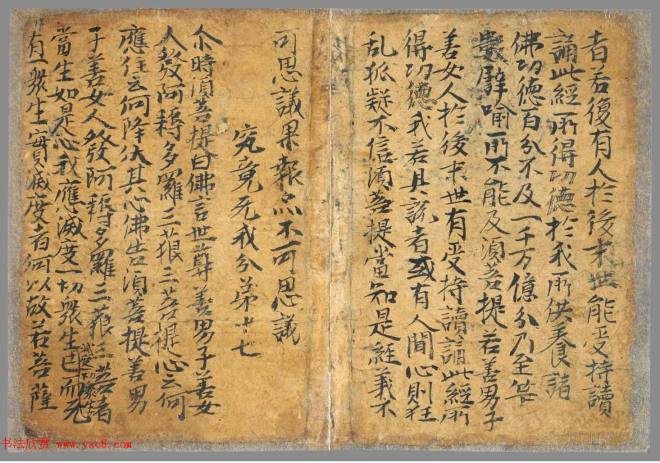 者若復有人於後末世能受持讀
誦此經所得功德於我所供養諸
佛功德百分不及一千万億分乃至筭
數譬喻所不能及須菩提若善男子
善女人於後末世有受持讀誦此經所
得功德我若具說者或有人聞心則狂
乱狐疑不信須菩提當知是經義不
可思議果報亦不可思議
究竟无我分第十七
尒時須菩提白佛言世尊善男子善女
人發阿耨多羅三藐三菩提心云何
應住云何降伏其心佛告須菩提善男
子善女人發阿耨多羅三藐三菩者
當生如是心我應滅度一切衆生已而无
滅度一切衆生
有一衆生實滅度者何以故若菩薩
书法欣赏 www.yac8.com